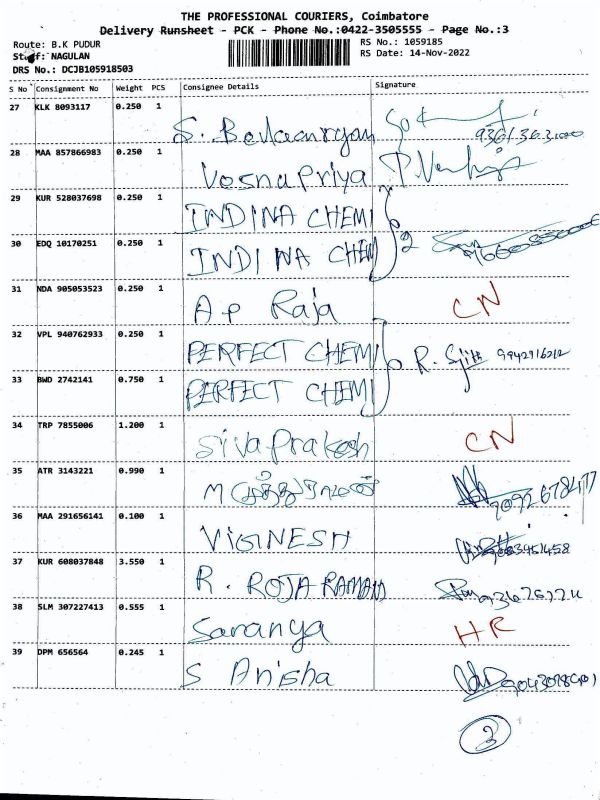 THE PROFESSIONAL COURIERS, Coimbatore
Delivery Runsheet - PCK - Phone No.:0422-3505555 - Page No.:3
Route: B.K PUDUR
RS No.: 1059185
Staff: NAGULAN
RS Date: 14-Nov-2022
DRS No.: DCJB105918503
S No Consignment No Weight PCS Consignee Details Signature
27 KLK 8093117 0.250 1 S.
28 MAA 857866983 0.250 1 VosnaPriya
29 KUR 528037698 0.250 1 INDINA CHEMI
30 EDQ 10170251 0.250 1 INDINA CHEM 2
31 NDA 905053523 0.250 1 A P Raja CN
32 VPL 940762933 0.250 1 PERFECT CHEMI R. 9942916212
33 BWD 2742141 0.750 1 PERFECT CHEMI
34 TRP 7855006 1.200 1 Siva Prakesh CN
35 ATR 3143221 0.990 1 M
36 MAA 291656141 0.100 1 VIGNESH
37 KUR 608037848 3.550 1 R. ROJA RAMANI
38 SLM 307227413 0.555 1 Saranya HR
39 DPM 656564 0.245 1 S Anisha
3